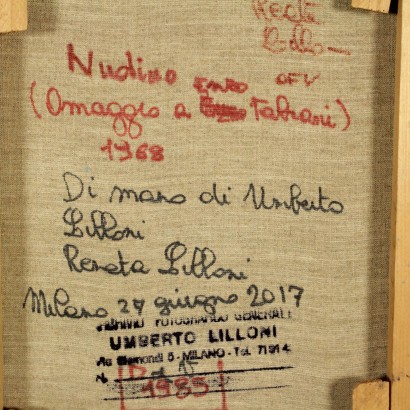 Nudino ENZO
(Omaggio a Fabiani)
1968
Di mano di Umberto
Lilloni
Renata Lilloni
Milano 27 giugno 2017
ARCHIVIO FOTOGRAFICO GENERALE
UMBERTO LILLONI
5 - MILANO - Tel. 7191 4
N.
1985